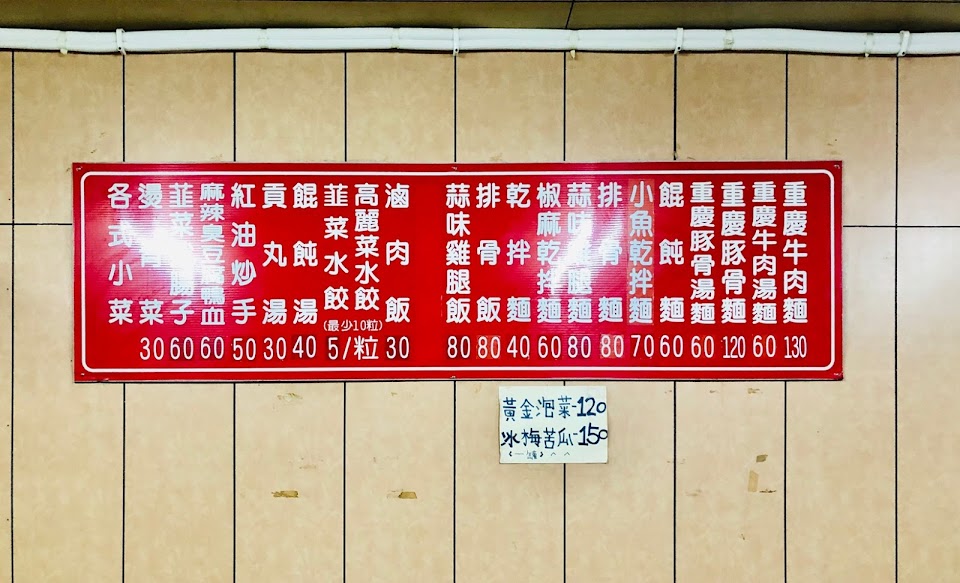 重慶牛肉麵 130
重慶牛肉湯麵 60
重慶豚骨麵 120
重慶豚骨湯麵 60
餛飩麵 60
小魚乾拌麵 70
排骨麵 80
蒜味雞腿麵 80
椒麻乾拌麵 60
乾拌麵 40
排骨飯 80
蒜味雞腿飯 80
滷肉飯 30
高麗菜水餃
韭菜水餃
(最少10粒)
5/粒
餛飩湯 40
貢丸湯 30
紅油炒手 50
麻辣臭豆腐鴨血 60
韭菜腸子 60
燙青菜 30
各式小菜
黃金泡菜-120
冰梅苦瓜-150